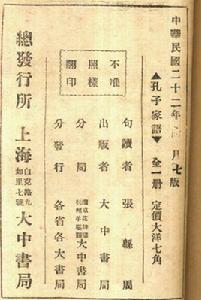 中華民國二十二年 月七版
▲孔子家語▼ 全一冊
定價大洋七角
句讀者 張緜周
出版者 大中書局
分局 大中書局
分發行 各省各大書局
不准照樣翻印
總發行所 上海 白克路九如里七號 大中書局